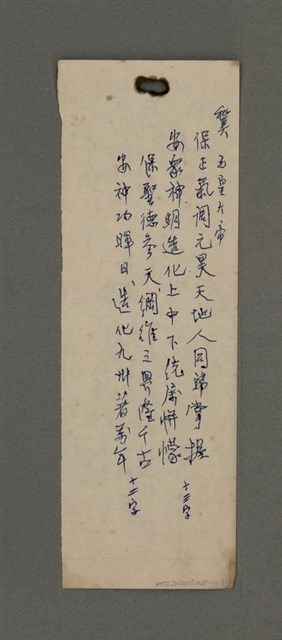 玉皇大帝
保正氣調元昊天地人同歸掌握 十三字
安眾神明造化上中下統屬帡幪
保聖德參天綱維三界隆千古
安神功暉日造化九州著萬年 十二字